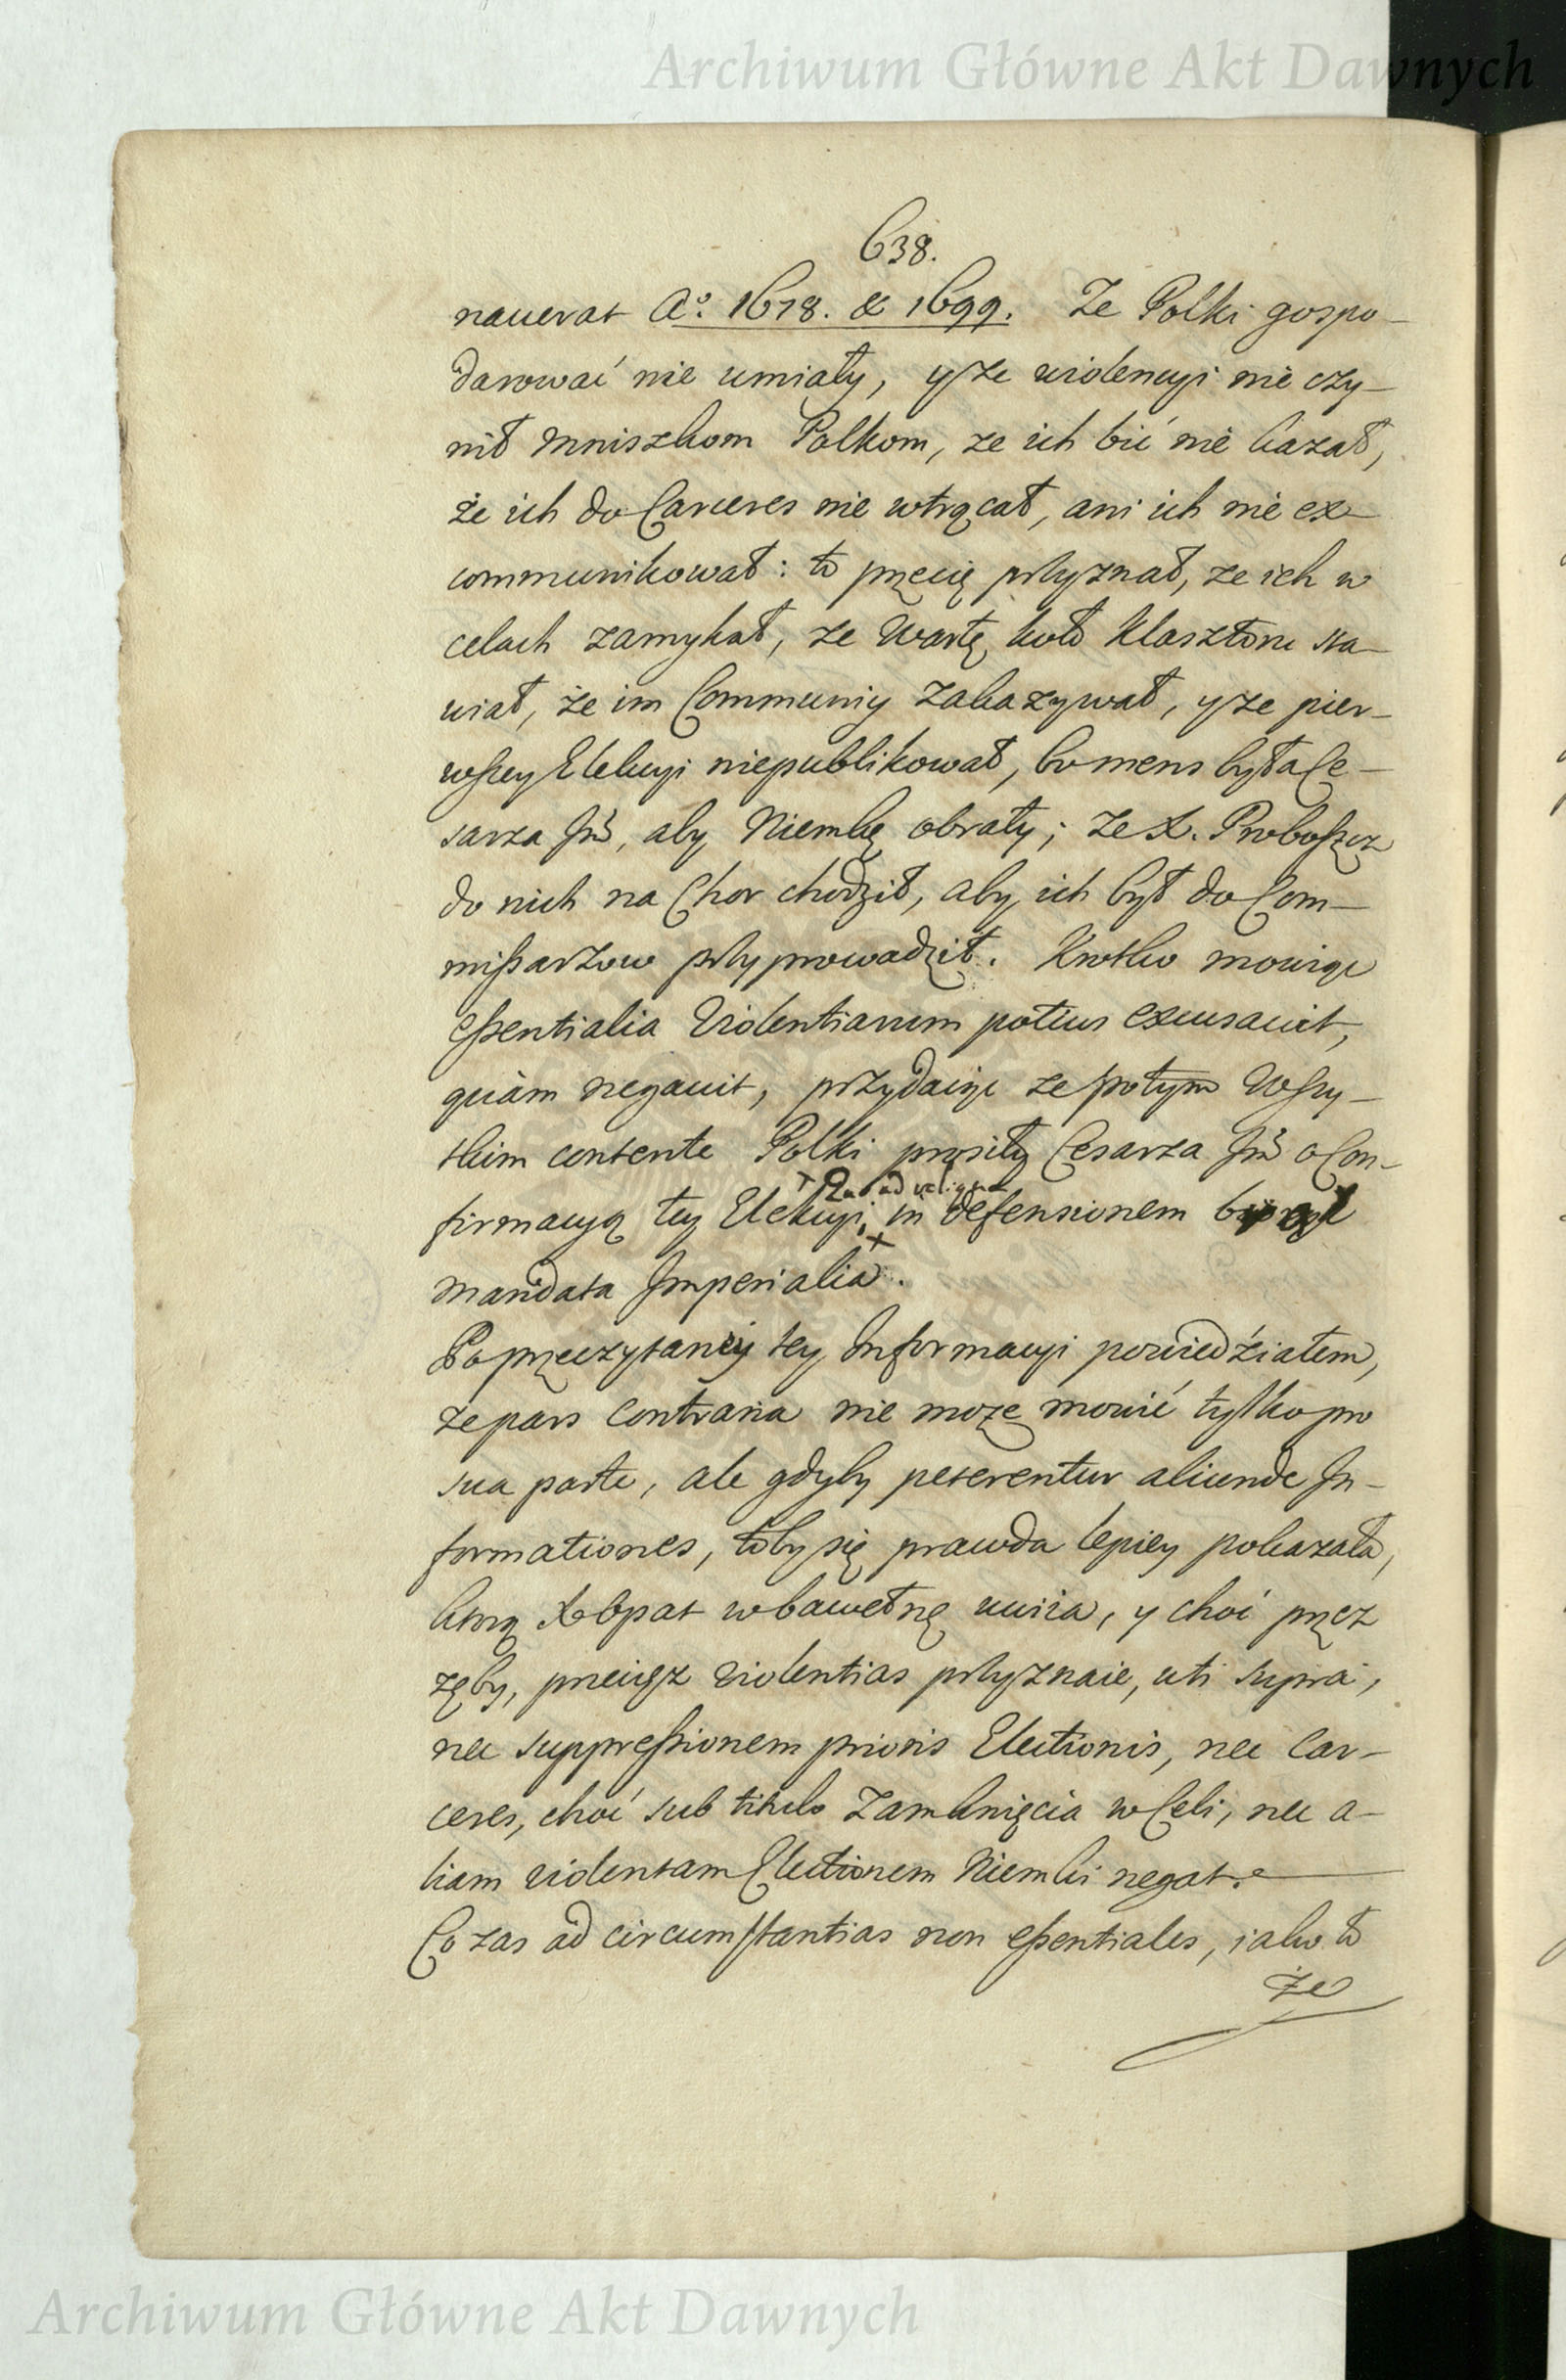 Archiwum Główne Akt Dawnych
638.
nauerat Ao. 1678. & 1699. Ze Polki gospo-
darować nie umiały, y że violencyi nie czy-
nił Mniszkom Polkom, ze ich bić nie kazał,
że ich do Carceres nie wtrącał, ani ich nie ex-
communikował: to przecię przyznał, ze ich w
celach zamykał, ze Wartę koło Klasztoru sta-
wiał, że im Communiy zakazywał, y że pier-
wszey Elekcyi niepublikował, bo mens była Ce-
sarza Jmć, aby Niemkę obrały; że X. Proboszcz
do nich na Chor chodził, aby ich był do Com-
missarzow przyprowadził. Krotko mowiąc
essentialia Violentiarum potius excusavit,
quàm negauit, przydaiąc ze potym Wszy-
tkim contente Polki prosiły Cesarza Jmć o Con-
firmacyą tey Elekcyi, in defensionem
mandata Imperialia.
Po przeczytaniy tey Informacyi powiedźiałem,
że pars contraria nie może mowić tylko pro
sua parte, ale gdyby peterentur aliunde In-
formationes, toby się prawda lepiey pokazała,
ktorą X Opat w bawełnę uwiia, y choć przez
zęby, przeciesz violentias przyznaie, uti supra,
nec suppressionem prioris Electionis, nec Car-
ceres, choć sub titulo Zamknięcia w Celi, nec a-
liam violentam Electionem Niemki negat.
Co zas ad circumstantias non essentiales, iako to
że
Archiwum Główne Akt Dawnych